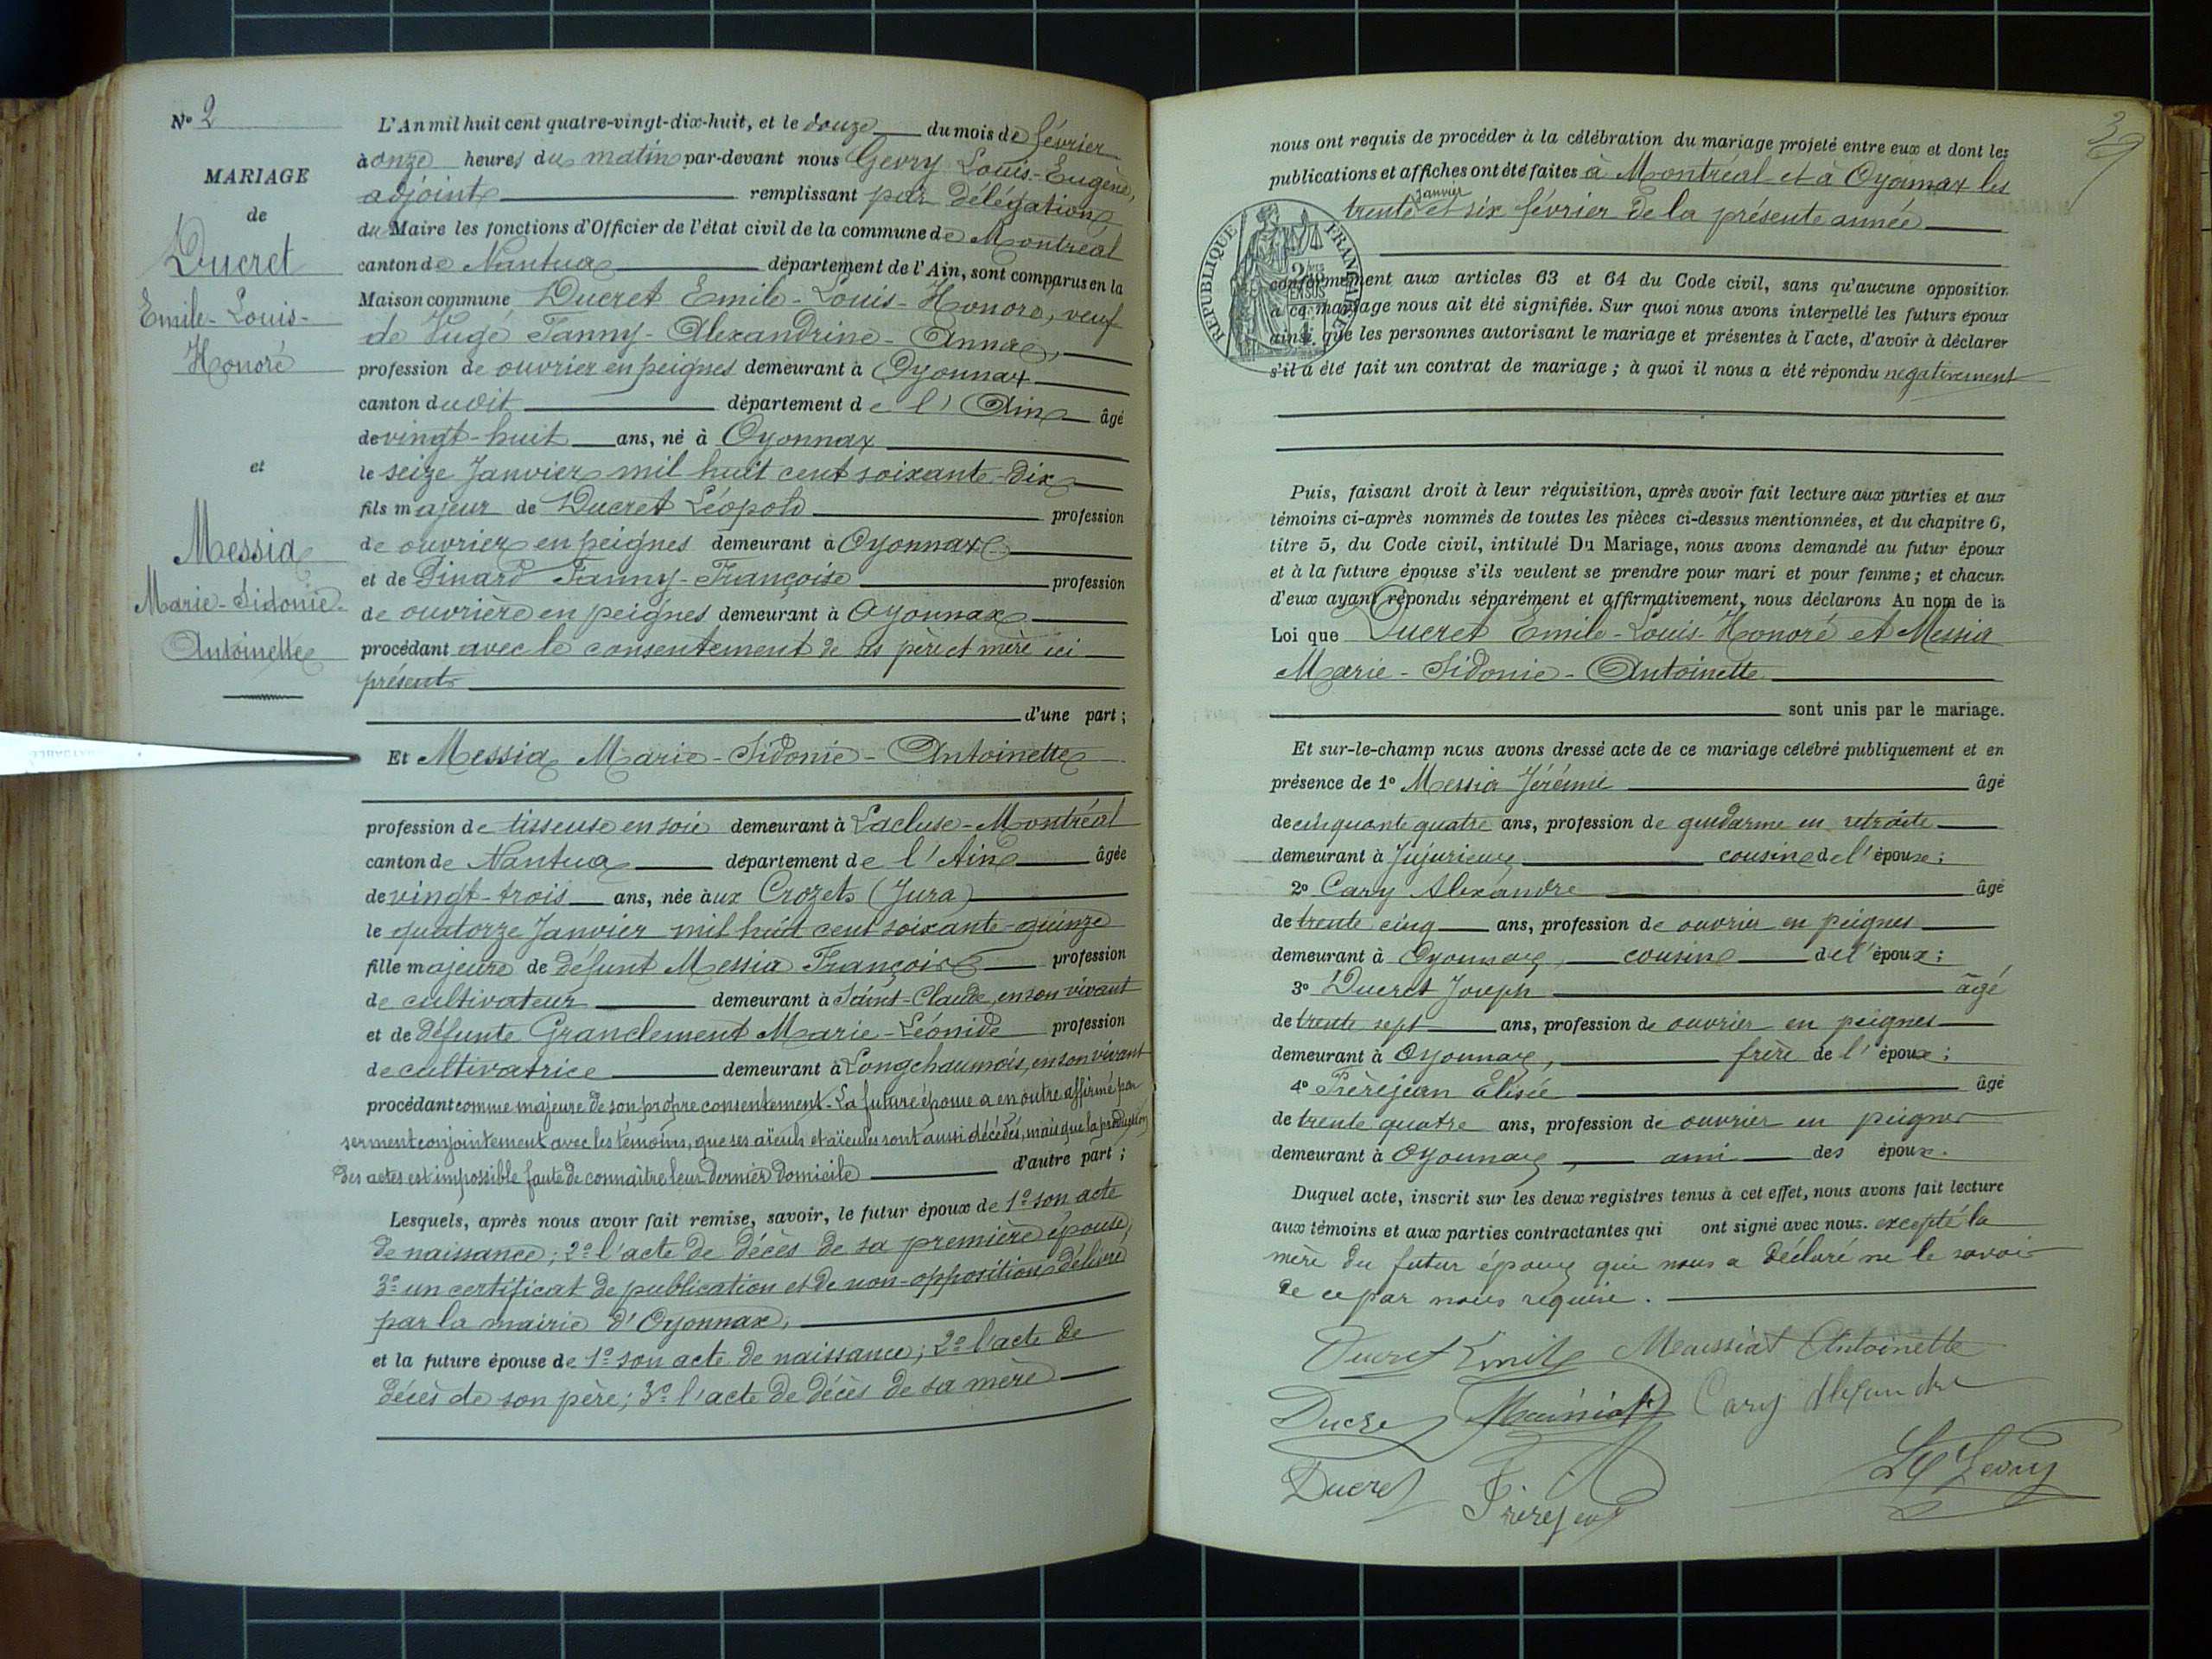 N° 2
MARIAGE
de
Ducret
Emile-Louis-
Honoré
et
Messia
Marie-Sidonie-
Antoinette
L'An mil huit cent quatre-vingt-dix-huit, et le douze du mois de février
à onze heures du matin par-devant nous Gevry Louis-Eugène,
adjoint remplissant par délégation
du Maire les fonctions d'Officier de l'état civil de la commune de Montréal
canton de Nantua département de l'Ain, sont comparus en la
Maison commune Ducret Emile-Louis-Honoré, veuf
de Fanny-Alexandrine-Anna,
profession de ouvrier en peignes demeurant à Oyonnax
canton dudit département de l'Ain âgé
de vingt-huit ans, né à Oyonnax
le seize Janvier mil huit cent soixante-dix
fils majeur de Ducret Léopold profession
de ouvrier en peignes demeurant à Oyonnax
et de Dinard Fanny-Françoise profession
de ouvrière en peignes demeurant à Oyonnax
procédant avec le consentement de ses père et mère ici
présents
d'une part ;
Et Messia Marie-Sidonie-Antoinette
profession de tisseuse en soie demeurant à Lacluse-Montréal
canton de Nantua département de l'Ain âgée
de vingt-trois ans, née à ux Crozets (Jura)
le quatorze Janvier mil huit cent soixante-quinze
fille majeure de défunt Messia François profession
de cultivateur demeurant à Saint-Claude, en son vivant
et de défunte Granclement Marie-Léonide profession
de cultivatrice demeurant à Longchaumois, en son vivant
procédant comme majeure de son propre consentement. La future épouse a en outre affirmé par
serment conjointement avec les témoins, que ses aïeuls et aïeules sont aussi décédés, mais que la production
des actes est impossible faute de connaître leur dernier domicile d'autre part ;
Lesquels, après nous avoir fait remise, savoir, le futur époux de 1° son acte
de naissance ; 2° l'acte de décès de sa première épouse,
3° un certificat de publication et de non-opposition délivré
par la mairie d'Oyonnax,
et la future épouse de 1° son acte de naissance ; 2° l'acte de
décès de son père ; 3° l'acte de décès de sa mère
nous ont requis de procéder à la célébration du mariage projeté entre eux et dont les
publications et affiches ont été faites à Montréal et à Oyonnax les
janvier
trente et six février de la présente année
RÉPUBLIQUE FRANÇAISE
conformément aux articles 63 et 64 du Code civil, sans qu'aucune opposition
à ce mariage nous ait été signifiée. Sur quoi nous avons interpellé les futurs époux
ainsi que les personnes autorisant le mariage et présentes à l'acte, d'avoir à déclarer
s'il a été fait un contrat de mariage ; à quoi il nous a été répondu négativement
Puis, faisant droit à leur réquisition, après avoir fait lecture aux parties et aux
témoins ci-après nommés de toutes les pièces ci-dessus mentionnées, et du chapitre 6,
titre 5, du Code civil, intitulé Du Mariage, nous avons demandé au futur époux
et à la future épouse s'ils veulent se prendre pour mari et pour femme ; et chacun
d'eux ayant répondu séparément et affirmativement, nous déclarons Au nom de la
Loi que Ducret Emile-Louis-Honoré et Messia
Marie-Sidonie-Antoinette
sont unis par le mariage.
Et sur-le-champ nous avons dressé acte de ce mariage célébré publiquement et en
présence de 1° Messia Jérémie âgé
de cinquante quatre ans, profession de gendarme en retraite
demeurant à Jujurieux cousin de l'épouse ;
2° Cary Alexandre âgé
de trente cinq ans, profession de ouvrier en peignes
demeurant à Oyonnax, cousin de l'époux ;
3° Ducret Joseph âgé
de trente sept ans, profession de ouvrier en peignes
demeurant à Oyonnax, frère de l'époux ;
4° Frèrejean Elisée âgé
de trente quatre ans, profession de ouvrier en peignes
demeurant à Oyonnax, ami des époux.
Duquel acte, inscrit sur les deux registres tenus à cet effet, nous avons fait lecture
aux témoins et aux parties contractantes qui ont signé avec nous. excepté la
mère du futur époux qui nous a déclaré ne le savoir
de ce par nous requise.
Ducret Emile Maissiat Antoinette
Ducret Maissiat Cary Alexandre
Ducret Frèrejean